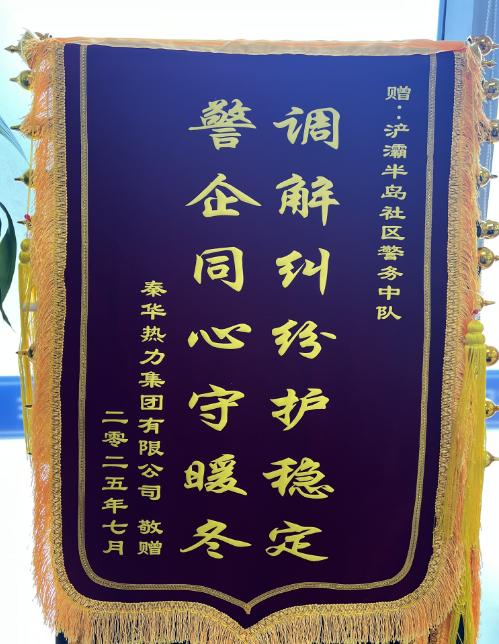 赠：浐灞半岛社区警务中队
调解纠纷护稳定
警企同心守暖冬
秦华热力集团有限公司 敬赠
二零二五年七月